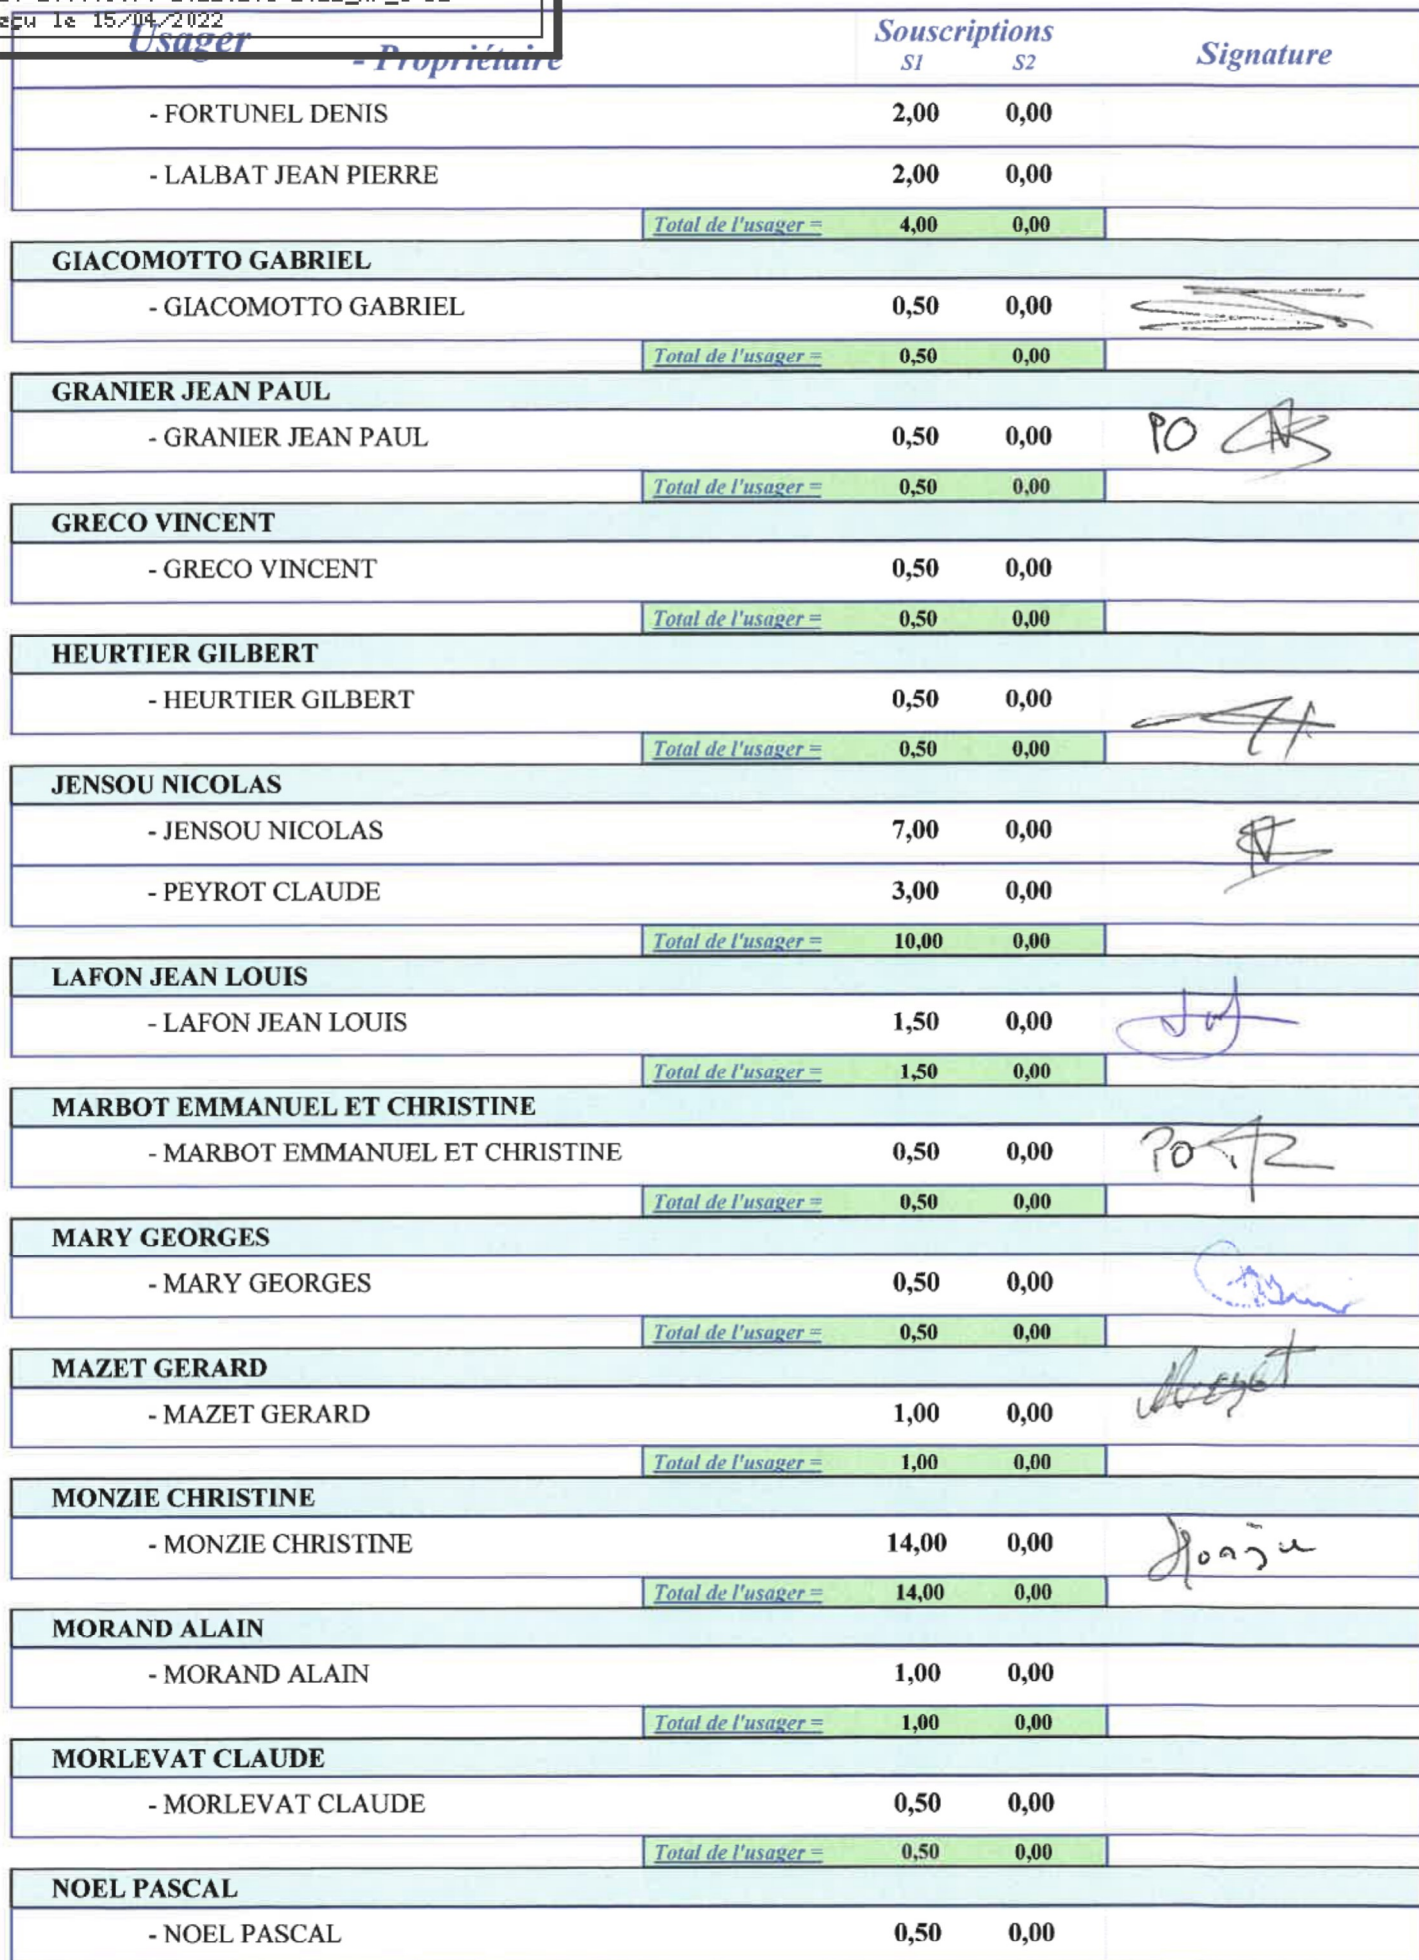 reçu le 15/04/2022
Usager - Propriétaire Souscriptions Signature
S1 S2
- FORTUNEL DENIS 2,00 0,00
- LALBAT JEAN PIERRE 2,00 0,00
Total de l'usager = 4,00 0,00
GIACOMOTTO GABRIEL
- GIACOMOTTO GABRIEL 0,50 0,00
Total de l'usager = 0,50 0,00
GRANIER JEAN PAUL
- GRANIER JEAN PAUL 0,50 0,00 PO
Total de l'usager = 0,50 0,00
GRECO VINCENT
- GRECO VINCENT 0,50 0,00
Total de l'usager = 0,50 0,00
HEURTIER GILBERT
- HEURTIER GILBERT 0,50 0,00
Total de l'usager = 0,50 0,00
JENSOU NICOLAS
- JENSOU NICOLAS 7,00 0,00
- PEYROT CLAUDE 3,00 0,00
Total de l'usager = 10,00 0,00
LAFON JEAN LOUIS
- LAFON JEAN LOUIS 1,50 0,00
Total de l'usager = 1,50 0,00
MARBOT EMMANUEL ET CHRISTINE
- MARBOT EMMANUEL ET CHRISTINE 0,50 0,00 PO
Total de l'usager = 0,50 0,00
MARY GEORGES
- MARY GEORGES 0,50 0,00
Total de l'usager = 0,50 0,00
MAZET GERARD
- MAZET GERARD 1,00 0,00 Mazet
Total de l'usager = 1,00 0,00
MONZIE CHRISTINE
- MONZIE CHRISTINE 14,00 0,00
Total de l'usager = 14,00 0,00
MORAND ALAIN
- MORAND ALAIN 1,00 0,00
Total de l'usager = 1,00 0,00
MORLEVAT CLAUDE
- MORLEVAT CLAUDE 0,50 0,00
Total de l'usager = 0,50 0,00
NOEL PASCAL
- NOEL PASCAL 0,50 0,00